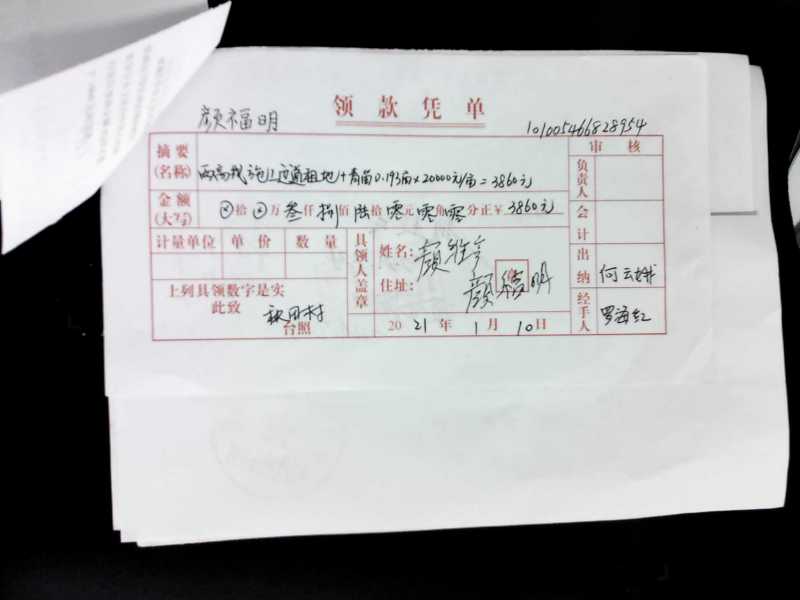 领款凭单
颜福明
10100546682 8954
摘要(名称) 施工便道租地+青苗0.193亩×20000元/亩=3860元
审核
负责人
金额(大写) ⊗拾⊗万叁仟捌佰陆拾零元零角零分正¥3860元
会计
计量单位 单价 数量
具领人盖章
姓名:
住址: 颜福明
出纳 何云娥
上列具领数字是实
此致 秋田村
台照
2021年1月10日
经手人 罗海红